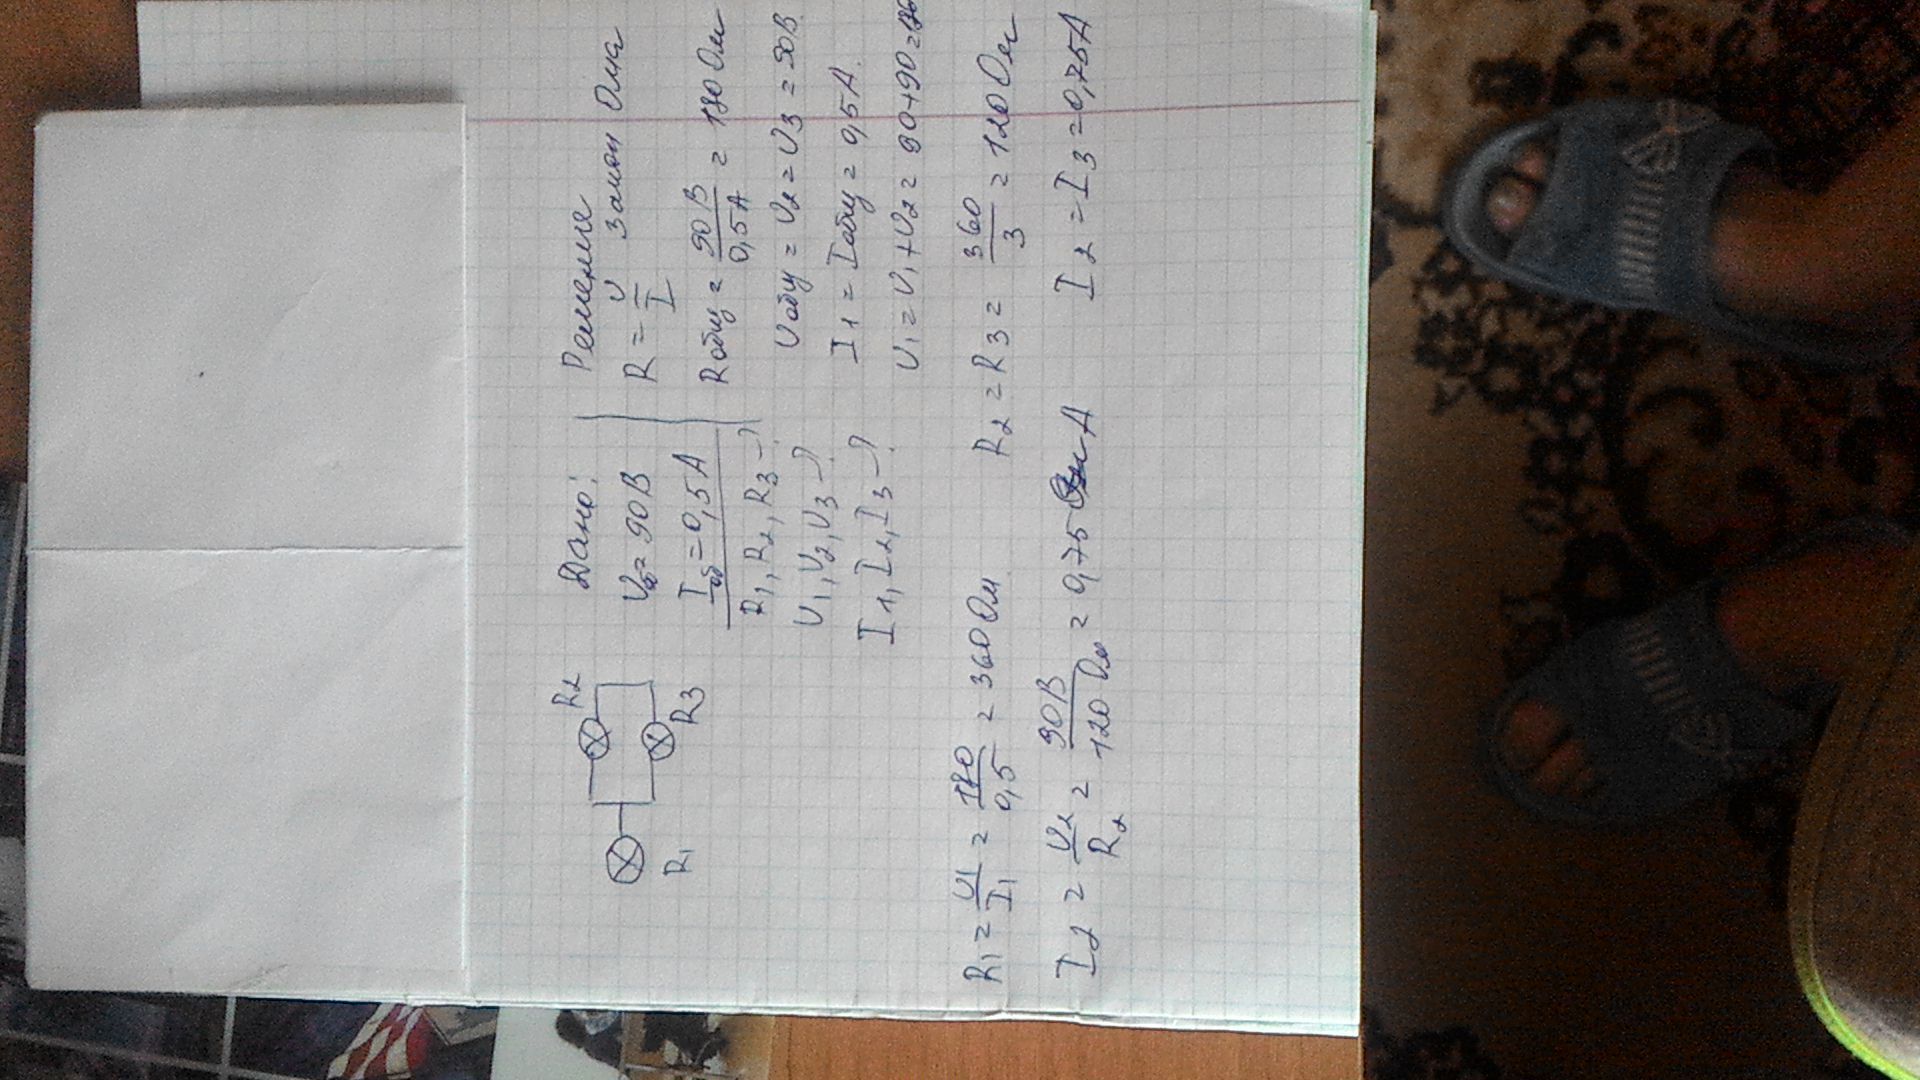 R₂
R₁
R₃
Дано:
Uоб = 90В
Iоб = 0,5А
R₁, R₂, R₃ - ?
U₁, U₂, U₃ - ?
I₁, I₂, I₃ - ?
Решение
R = U/I закон Ома
Rобщ = 90В/0,5А = 180 Ом
Uобщ = U₂ = U₃ = 90В
I₁ = Iобщ = 0,5А
U₁ = U₁ + U₂ = 90+90 =
R₁ = U₁/I₁ = 180/0,5 = 360 Ом R₂ = R₃ = 360/3 = 120 Ом
I₂ = U₂/R₂ = 90В/120 Ом = 0,75 А I₂ = I₃ = 0,75А